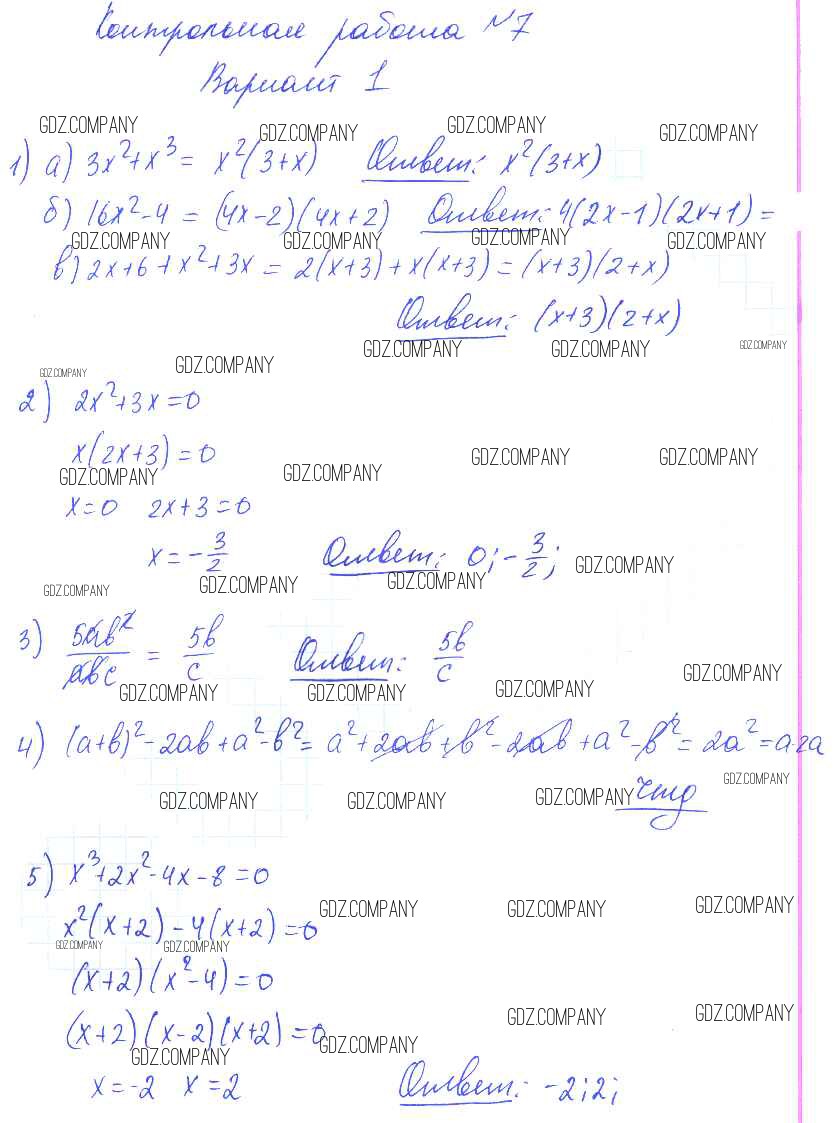 Контрольная работа №7
Вариант 1
GDZ.COMPANY GDZ.COMPANY GDZ.COMPANY GDZ.COMPANY
1) а) 3x²+x³ = x²(3+x) Ответ: x²(3+x)
б) 16x²-4 = (4x-2)(4x+2) Ответ: 4(2x-1)(2x+1) =
GDZ.COMPANY GDZ.COMPANY GDZ.COMPANY GDZ.COMPANY
в) 2x+6+x²+3x = 2(x+3)+x(x+3) = (x+3)(2+x)
Ответ: (x+3)(2+x)
GDZ.COMPANY GDZ.COMPANY GDZ.COMPANY GDZ.COMPANY GDZ.COMPANY
2) 2x²+3x=0
x(2x+3)=0
GDZ.COMPANY GDZ.COMPANY GDZ.COMPANY GDZ.COMPANY
x=0 2x+3=0
x=-3/2 Ответ: 0;-3/2;
GDZ.COMPANY GDZ.COMPANY GDZ.COMPANY GDZ.COMPANY
3) 5ab²/abc = 5b/c Ответ: 5b/c
GDZ.COMPANY GDZ.COMPANY GDZ.COMPANY GDZ.COMPANY
4) (a+b)²-2ab+a²-b²= a²+2ab+b²-2ab+a²-b²= 2a²=a·2a
GDZ.COMPANY GDZ.COMPANY GDZ.COMPANY чтд GDZ.COMPANY
5) x³+2x²-4x-8=0
x²(x+2)-4(x+2)=0 GDZ.COMPANY GDZ.COMPANY GDZ.COMPANY
GDZ.COMPANY GDZ.COMPANY
(x+2)(x²-4)=0
(x+2)(x-2)(x+2)=0 GDZ.COMPANY GDZ.COMPANY GDZ.COMPANY
GDZ.COMPANY
x=-2 x=2 Ответ: -2;2;